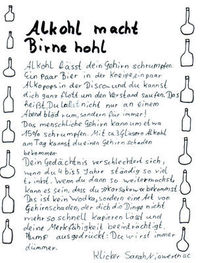 Alkohol macht
Birne hohl
Alkohol lässt dein Gehirn schrumpfen.
Ein paar Bier in der Kneipe, ein paar
Alkopops in der Disco und du kannst
dich ganz flott um den Verstand saufen. Das
heißt Du lallst nicht nur an einem
Abend blöd rum, sondern für immer!
Das menschliche Gehirn kann um etwa
15% schrumpfen. Mit ca 3 Gläsern Alkohol
am Tag kannst du einen Gehirnschaden
bekommen.
Dein Gedächtnis verschlechtert sich,
wenn du 4 bis 5 Jahre ständig so viel
trinkst. Wenn du dann so weitermachst,
kann es sein, dass du bekommst.
Das ist kein Wodka, sondern eine Art von
Gehirnschaden, der dich die Dinge nicht
mehr so schnell kapieren lässt und
deine Merkfähigkeit beeinträchtigt.
ausgedrückt: Du wirst immer
dümmer.
Klicker Sarah,